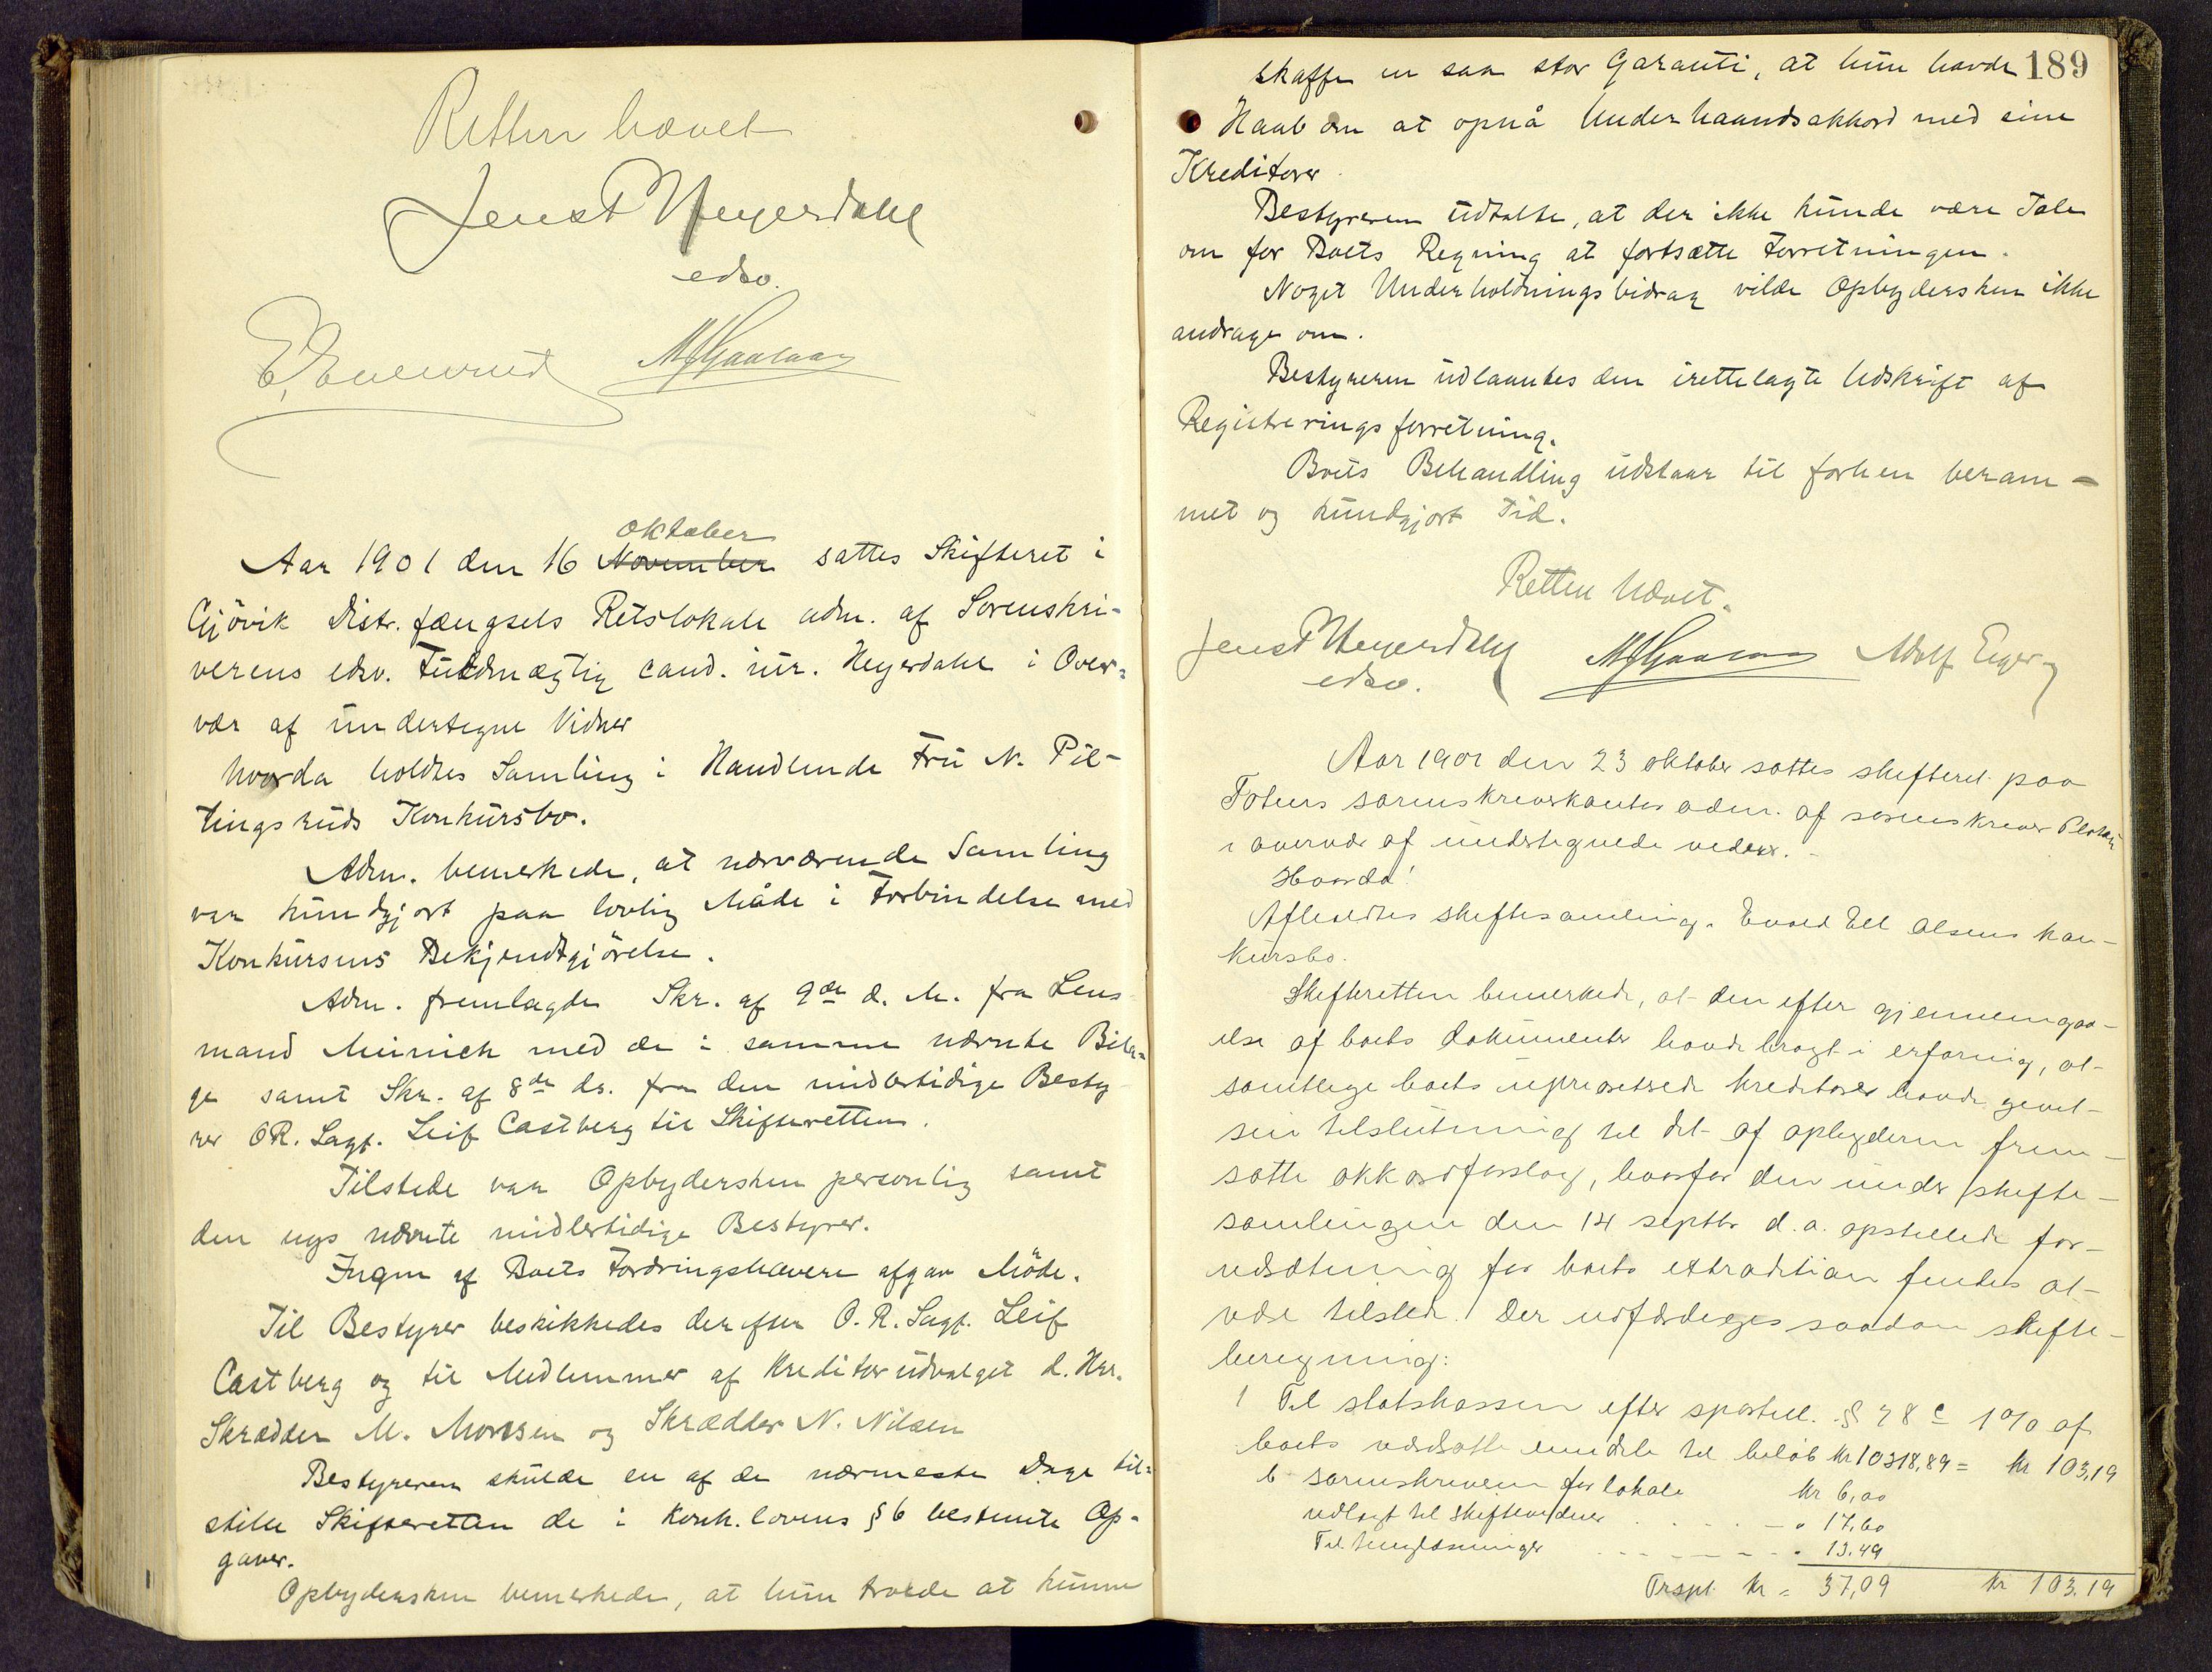 Retten hævet
Jens P Heyerdahl
edsv.
E. Enlewrud MJGaasaas
oktober
Aar 1901 den 16 November sattes Skifteret i
Gjövik Distr. fængsels Retslokale adm. af Sorenskri-
verens edsv. Fuldmægtig cand. jur. Heyerdahl i Over-
vær af undertegne Vidner
hvorda holdtes Samling i Handlende Fru N. Pil-
tingsruds Konkursbo.
Adm. bemerkede, at nærværende Samling
var kundgjort paa lovlig Måde i Forbindelse med
Konkursens Bekjendtgjörelse.
Adm. fremlagde Skr. af 9de d. M. fra Lens
mand Meinich med de i samme nævnte Bila-
ge samt Skr. af 8de ds. fra den midlertidige Besty
rer OR. Sagf. Leif Castberg til Skifteretten.
Tilstede var Opbydersken personlig samt
den nys nævnte midlertidige Bestyrer.
Ingen af Boets Fordringshavere afgav Möde.
Til Bestyrer beskikkedes derefter O. R. Sagf. Leif
Castberg og til Medlemmer af Kreditorudvalget d. Hrr.
Skrædder M. Monsen og Skrædder N. Nilsen
Bestyreren skulde en af de nærmeste Dage til-
stille Skifteretten de i Konk. lovens § 6 bestemte Op-
gaver.
Opbydersken bemerkede, at hun troede at kunne
189
skaffe en saa stor Garanti, at hun havde
Haab om at opnå Underhaandsakkord med sine
Kreditorer.
Bestyreren udtalte, at der ikke kunde være Tale
om for Boets Regning at fortsætte Forretningen.
Noget Underholdningsbidrag vilde Opbydersken ikke
andrage om.
Bestyreren udlaantes den irettelagte Udskrift af
Registreringsforretning.
Boets Behandling udstaar til forhen beram-
met og kundgjort Tid.
Retten hævet.
Jens P Heyerdahl MJGaasaas Adolf Eger
edsv.
Aar 1901 den 23 oktober sattes skifteret paa
Totens sorenskriverkontor adm. af sorenskriver
i overvær af undertegnede vidner. -
Hvorda!
Afholdtes skiftesamling i Olsens kon-
kursbo.
Skifteretten bemerkede, at den efter gjennemgaa-
else af boets dokumenter havde bragt i erfaring, at
samtlige boets uprioriterede kreditorer havde givet
sin tilslutning til det af opbyderen frem-
satte akkordforslag, hvorfor den under skifte-
samlingen den 14 septbr d. a. opstillede for-
udsætning for boets extradition fandtes at
være tilstede. Der udfærdiges saadan skifte-
beregning:
1 Til statskassen efter sportell. § 78 c 1 % af
boets værdsatte eiendele til beløb kr 10318,89 = kr 103,19
b sorenskriveren for lokale kr 6,00
udlagt til skiftevidner . . . - " 17,60
Til tinglæsninger . . . - - - " 13.49
Trspt kr = 37,09 kr 103.19